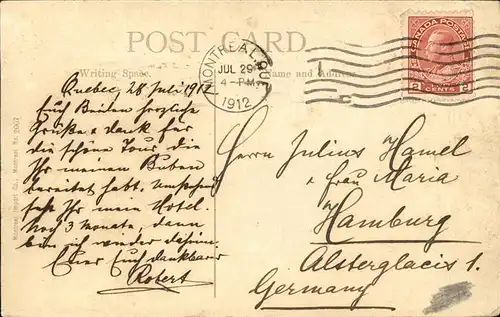 POST CARD
Writing Space.
Name and Address
MONTREAL, QUE.
JUL 29
4-PM
1912
CANADA POSTAGE
2 CENTS 2
Quebec, 28 Juli 1912
Euch Beiden herzliche
Grüße & dank für
die schöne Tour die
Ihr meinen Buben
bereitet habt. Umstehend
seht Ihr mein Hotel.
Noch 3 Monate, dann
bin ich wieder daheim.
Euer Euch dankbarer
Robert
Herrn Julius Hamel
& frau Maria
Hamburg
Alsterglacis 1.
Germany
Montreal Import Co., Montreal No.